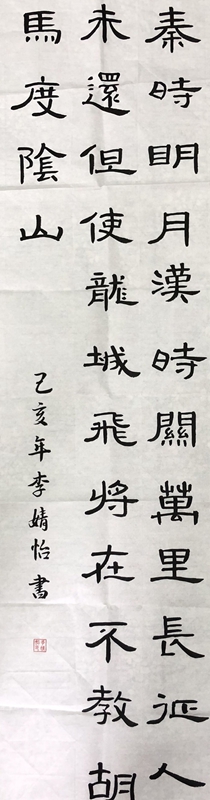 秦時明月漢時關萬里長征人
未還但使龍城飛將在不教胡
馬度陰山
己亥年李婧怡書